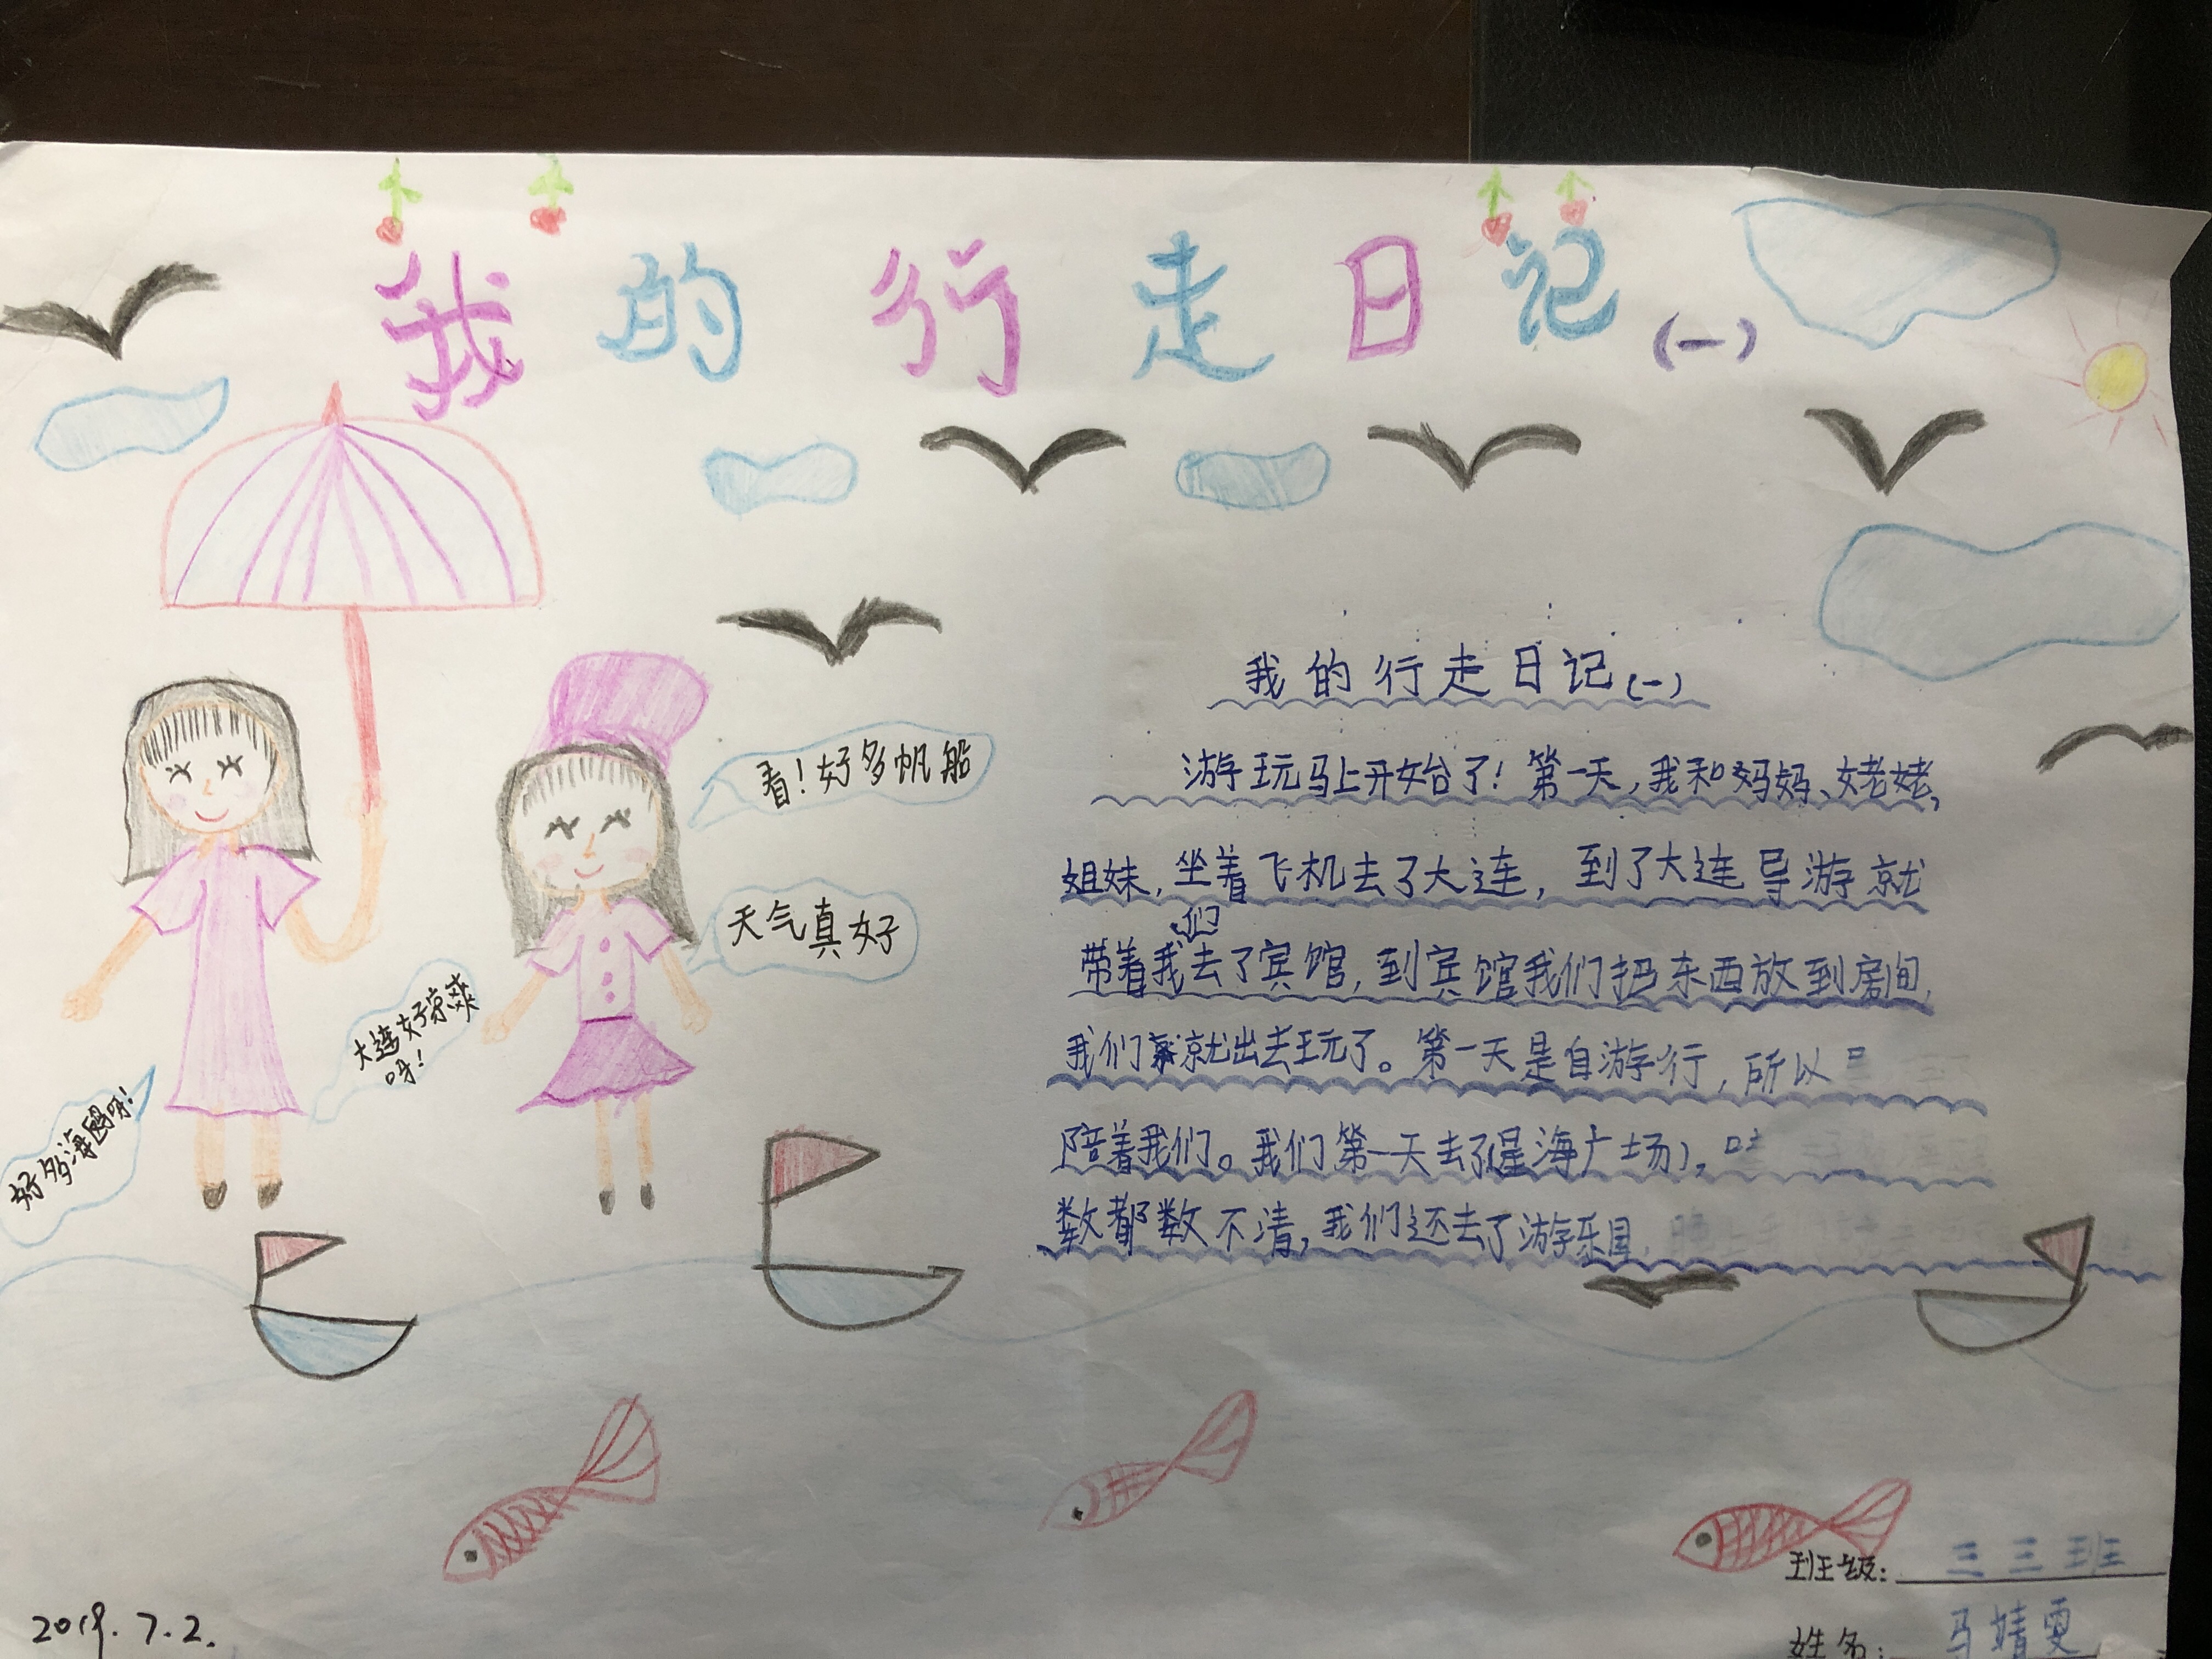 我的行走日记(一)
看!好多帆船
天气真好
大连好凉爽
呀!
好多海鸥呀!
我的行走日记(一)
游玩马上开始了!第一天,我和妈妈、姥姥,
姐妹,坐着飞机去了大连,到了大连导游就
带着我们去了宾馆,到宾馆我们把东西放到房间,
我们就出去玩了。第一天是自游行,所以
陪着我们。我们第一天去了(星海广场),
数都数不清,我们还去了游乐园
班级:三三班
姓名:马婧雯
2019.7.2.